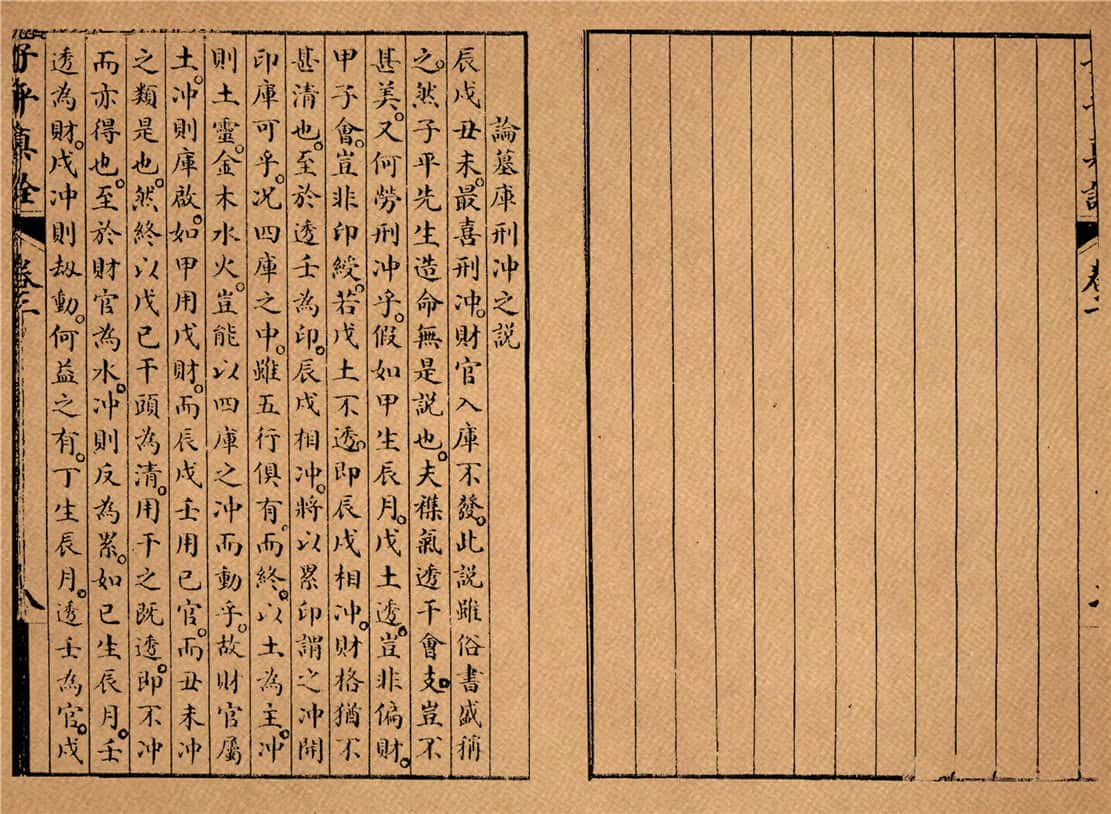 論墓庫刑冲之説
辰戌丑未。最喜刑冲。財官入庫不發。此説雖俗書盛稱
之。然子平先生造命無是説也。夫襍氣透干會支。豈不
甚美。又何勞刑冲乎。假如甲生辰月。戊土透。豈非偏財。
甲子會。豈非印綬。若戊土不透。即辰戌相冲。財格猶不
甚清也。至於透壬為印。辰戌相冲。將以累印謂之冲開
印庫可乎。况四庫之中。雖五行俱有。而終以土為主。冲
則土靈。金木水火。豈能以四庫之冲而動乎。故財官屬
土。冲則庫啟。如甲用戊財。而辰戌壬用已官。而丑未冲
之類是也。然終以戊已干頭為清。用干之既透。即不冲
而亦得也。至於財官為水。冲則反為累。如已生辰月。壬
透為財。戌冲則刼動。何益之有。丁生辰月。透壬為官。戌
子平真詮 卷 八